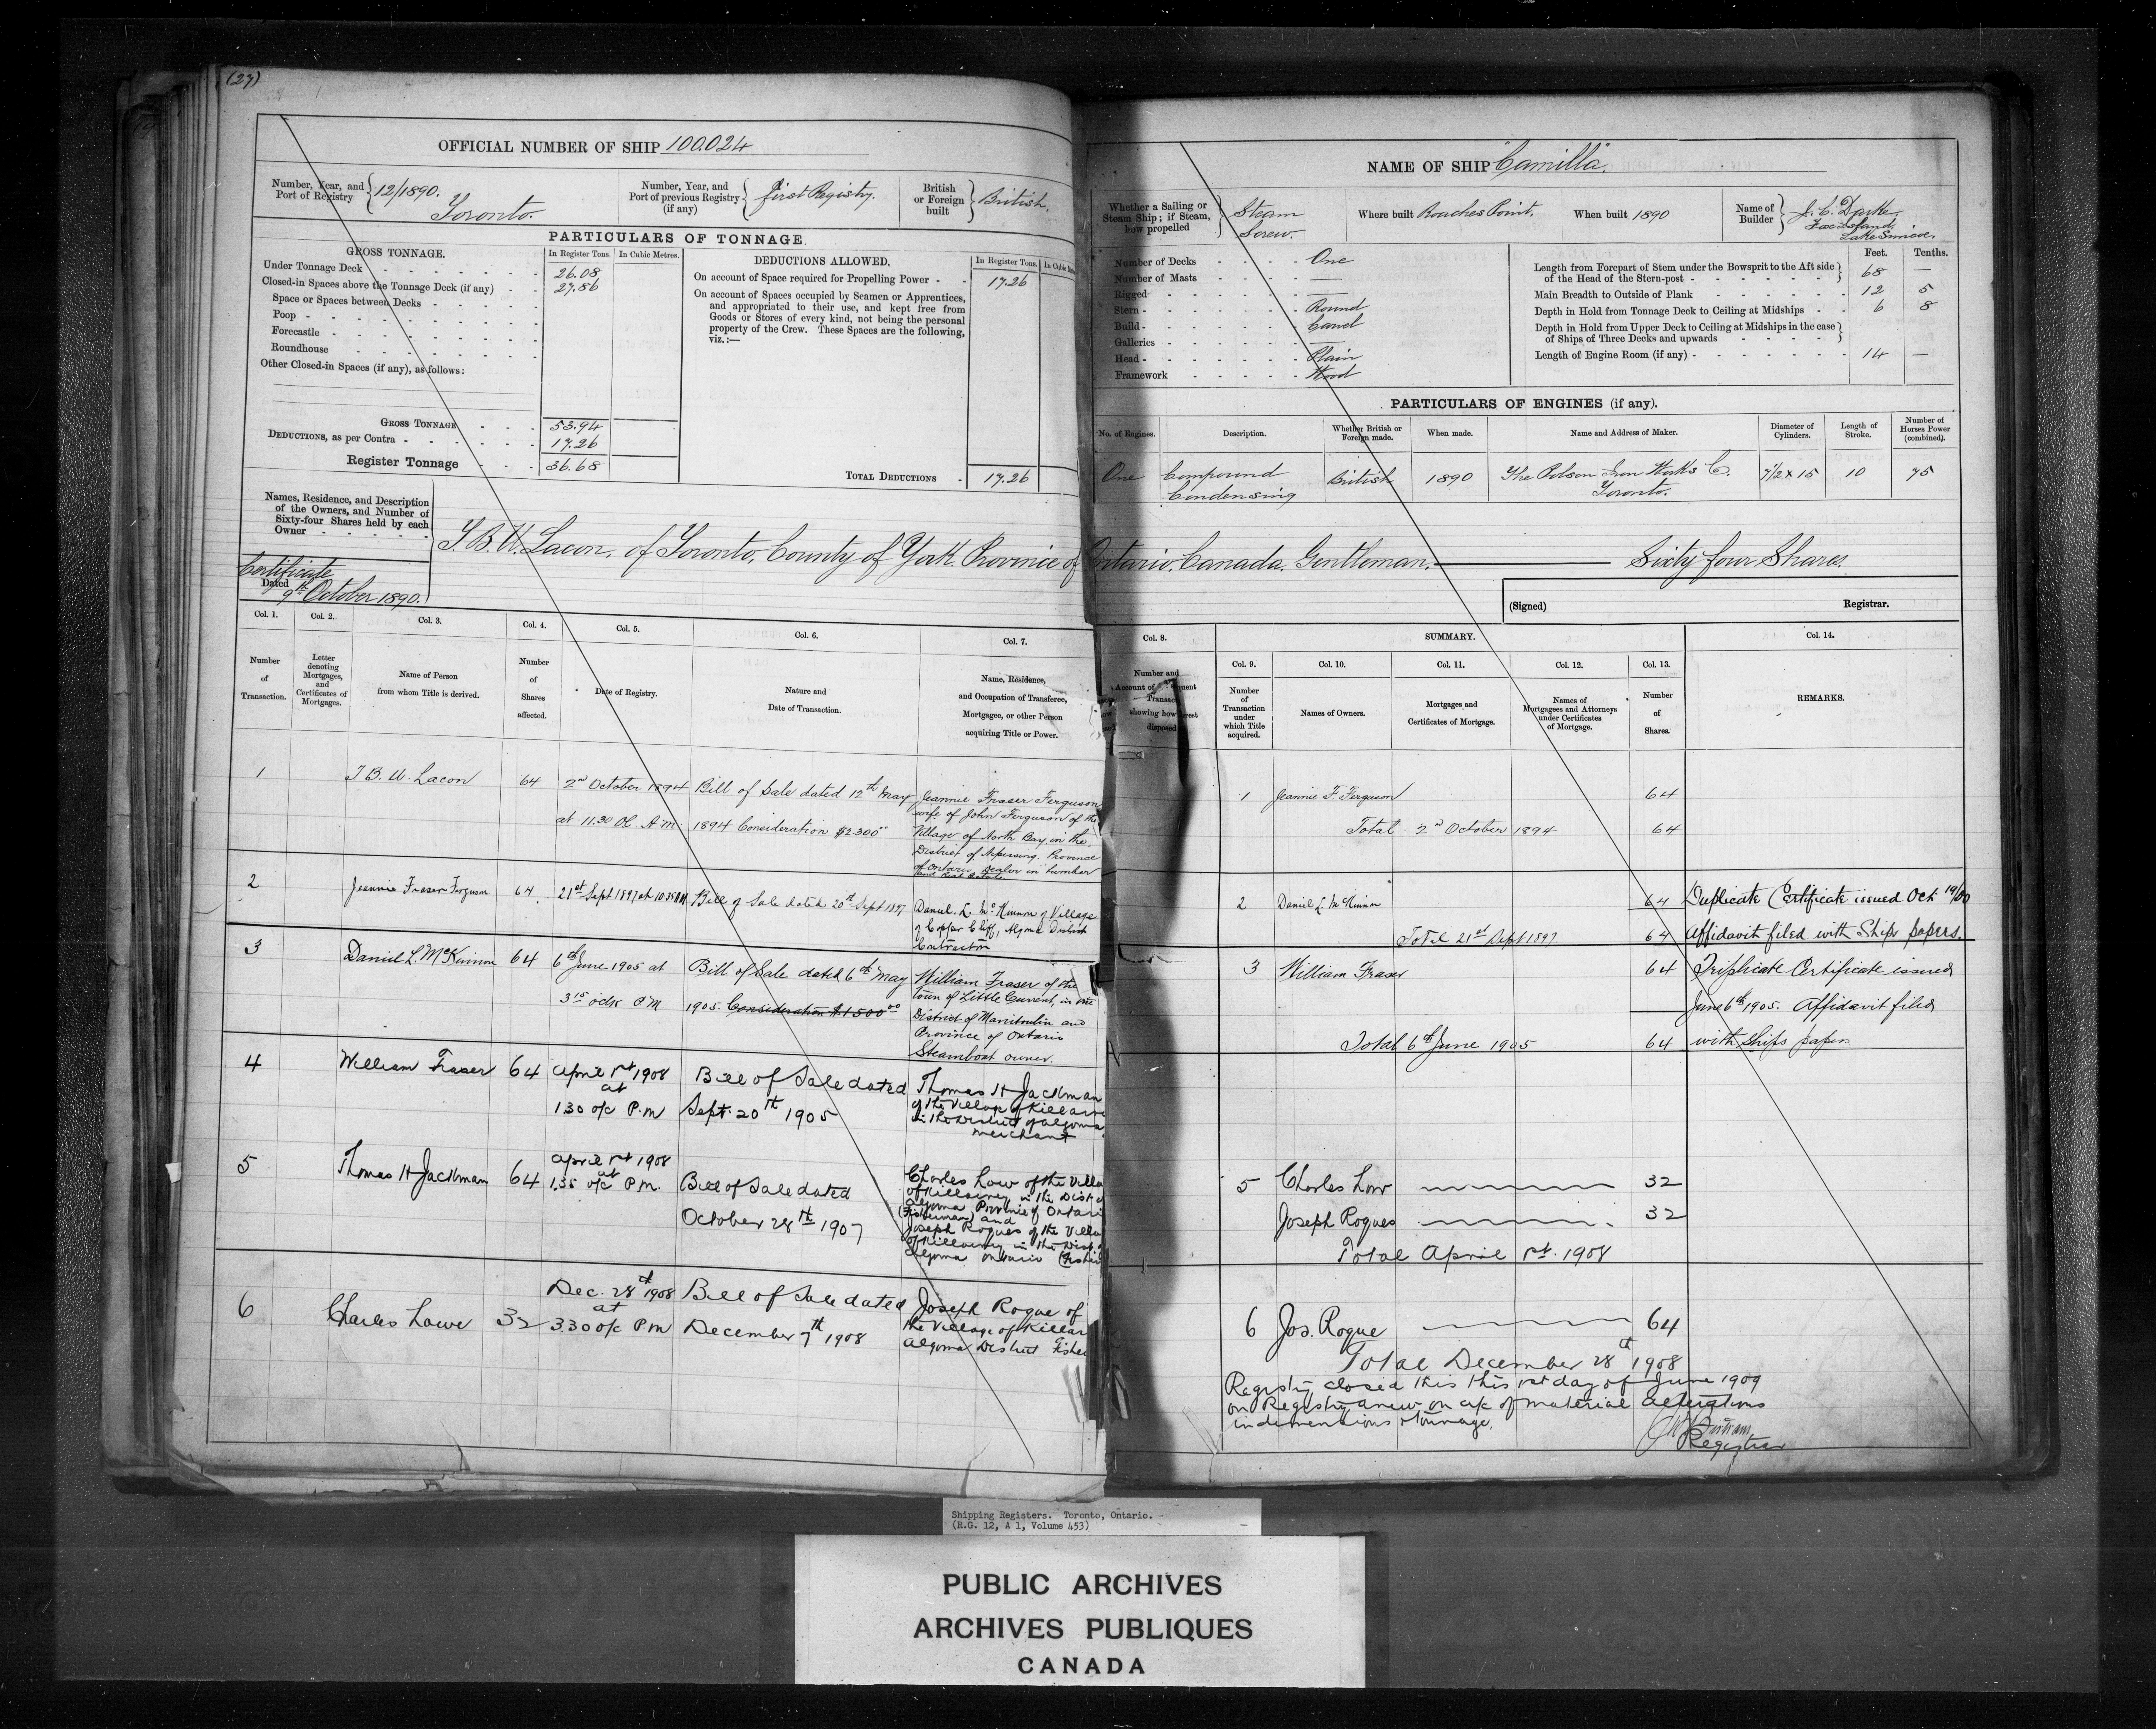 (27)
OFFICIAL NUMBER OF SHIP 100.024
Number, Year, and Port of Registry 12/1890. Toronto.
Number, Year, and Port of previous Registry (if any) first Registry.
British or Foreign built British.
PARTICULARS OF TONNAGE.
GROSS TONNAGE.
In Register Tons. In Cubic Metres.
Under Tonnage Deck 26.08
Closed-in Spaces above the Tonnage Deck (if any) 27.86
Space or Spaces between Decks
Poop
Forecastle
Roundhouse
Other Closed-in Spaces (if any), as follows:
GROSS TONNAGE 53.94
DEDUCTIONS, as per Contra 17.26
Register Tonnage 36.68
DEDUCTIONS ALLOWED.
In Register Tons.
On account of Space required for Propelling Power 17.26
On account of Spaces occupied by Seamen or Apprentices,
and appropriated to their use, and kept free from
Goods or Stores of every kind, not being the personal
property of the Crew. These Spaces are the following,
viz.:—
TOTAL DEDUCTIONS 17.26
NAME OF SHIP "Camilla".
Whether a Sailing or Steam Ship; if Steam, how propelled Steam Screw.
Where built Roaches Point.
When built 1890
Name of Builder J. C. Darke Fox Island, Lake Simcoe.
Number of Decks One
Number of Masts —
Rigged —
Stern Round
Build Carvel
Galleries —
Head Plain
Framework Wood
Feet. Tenths.
Length from Forepart of Stem under the Bowsprit to the Aft side of the Head of the Stern-post 68 —
Main Breadth to Outside of Plank 12 5
Depth in Hold from Tonnage Deck to Ceiling at Midships 6 8
Depth in Hold from Upper Deck to Ceiling at Midships in the case of Ships of Three Decks and upwards
Length of Engine Room (if any) 14 —
PARTICULARS OF ENGINES (if any).
No. of Engines. Description. Whether British or Foreign made. When made. Name and Address of Maker. Diameter of Cylinders. Length of Stroke. Number of Horses Power (combined).
One Compound Condensing British 1890 The Polson Iron Works Co. Toronto. 7 1/2 x 15 10 75
Names, Residence, and Description
of the Owners, and Number of
Sixty-four Shares held by each
Owner
T. B. U. Lacon, of Toronto, County of York Province of Ontario. Canada. Gentleman. — Sixty four Shares.
Certificate
Dated
9th October 1890.
(Signed) Registrar.
Col. 1. Col. 2. Col. 3. Col. 4. Col. 5. Col. 6. Col. 7.
Number of Transaction.
Letter denoting Mortgages, and Certificates of Mortgages.
Name of Person from whom Title is derived.
Number of Shares affected.
Date of Registry.
Nature and Date of Transaction.
Name, Residence, and Occupation of Transferee, Mortgagee, or other Person acquiring Title or Power.
Col. 8. SUMMARY. Col. 14.
Col. 9. Col. 10. Col. 11. Col. 12. Col. 13.
Number of Transaction under which Title acquired.
Names of Owners.
Mortgages and Certificates of Mortgage.
Names of Mortgagees and Attorneys under Certificates of Mortgage.
Number of Shares.
REMARKS.
1 T B. U. Lacon 64 2nd October 1894 Bill of Sale dated 12th May
at 11.30 Oc. A.M. 1894 Consideration $2300.00
Jeannie Fraser Ferguson
wife of John Ferguson of the
Village of North Bay, in the
District of Nipissing. Province
of Ontario Dealer in Lumber
and real estate
2 Jeannie Fraser Ferguson 64 21st Sept 1897 at 10.35 AM Bill of Sale dated 20th Sept 1897
Daniel. L. McKinnon of Village
of Copper Cliff, Algoma District
Contractor
3 Daniel L. McKinnon 64 6th June 1905 at Bill of Sale dated 6th May
3 15 oclk P.M. 1905. Consideration $1500.00
William Fraser of the
town of Little Current, in the
District of Manitoulin and
Province of Ontario
Steamboat owner.
4 William Fraser 64 April 1st 1908 Bill of Sale dated
at
1 30 o/c P.M Sept. 20th 1905
Thomas H Jackman
of the Village of Killarn
in the District of Algoma
merchant
5 Thomas H Jackman 64 April 1st 1908
at
1.35 o/c P.M. Bill of Sale dated
October 28th 1907
Charles Low of the Villa
of Killarney in the Dist of
Algoma Province of Ontari
(Fisherman) and
Joseph Roques of the Villa
of Killarney in the Dist of
Algoma Ontario (Fisher
6 Charles Lowe 32 Dec. 28th 1908 Bill of Sale dated
at
3.30 o/c P.M December 7th 1908
Joseph Roque of
the Village of Killar
Algoma District Fisher
1 Jeannie F. Ferguson 64
Total 2nd October 1894 64
2 Daniel L McKinnon 64
Total 21st Sept 1897. 64
Duplicate Certificate issued Oct 19/00
Affidavit filed with Ships papers.
3 William Fraser 64
Total 6th June 1905 64
Triplicate Certificate issued
June 6th 1905. Affidavit filed
with Ships papers
5 Charles Low 32
Joseph Roques 32
Total April 1st. 1908
6 Jos. Roque 64
Total December 28th 1908
Registry closed this this 1st day of June 1909
on Registry anew on a/c of material alterations
in dementions & tonnage.
Registrar
Shipping Registers. Toronto, Ontario.
(R.G. 12, A 1, Volume 453)
PUBLIC ARCHIVES
ARCHIVES PUBLIQUES
CANADA